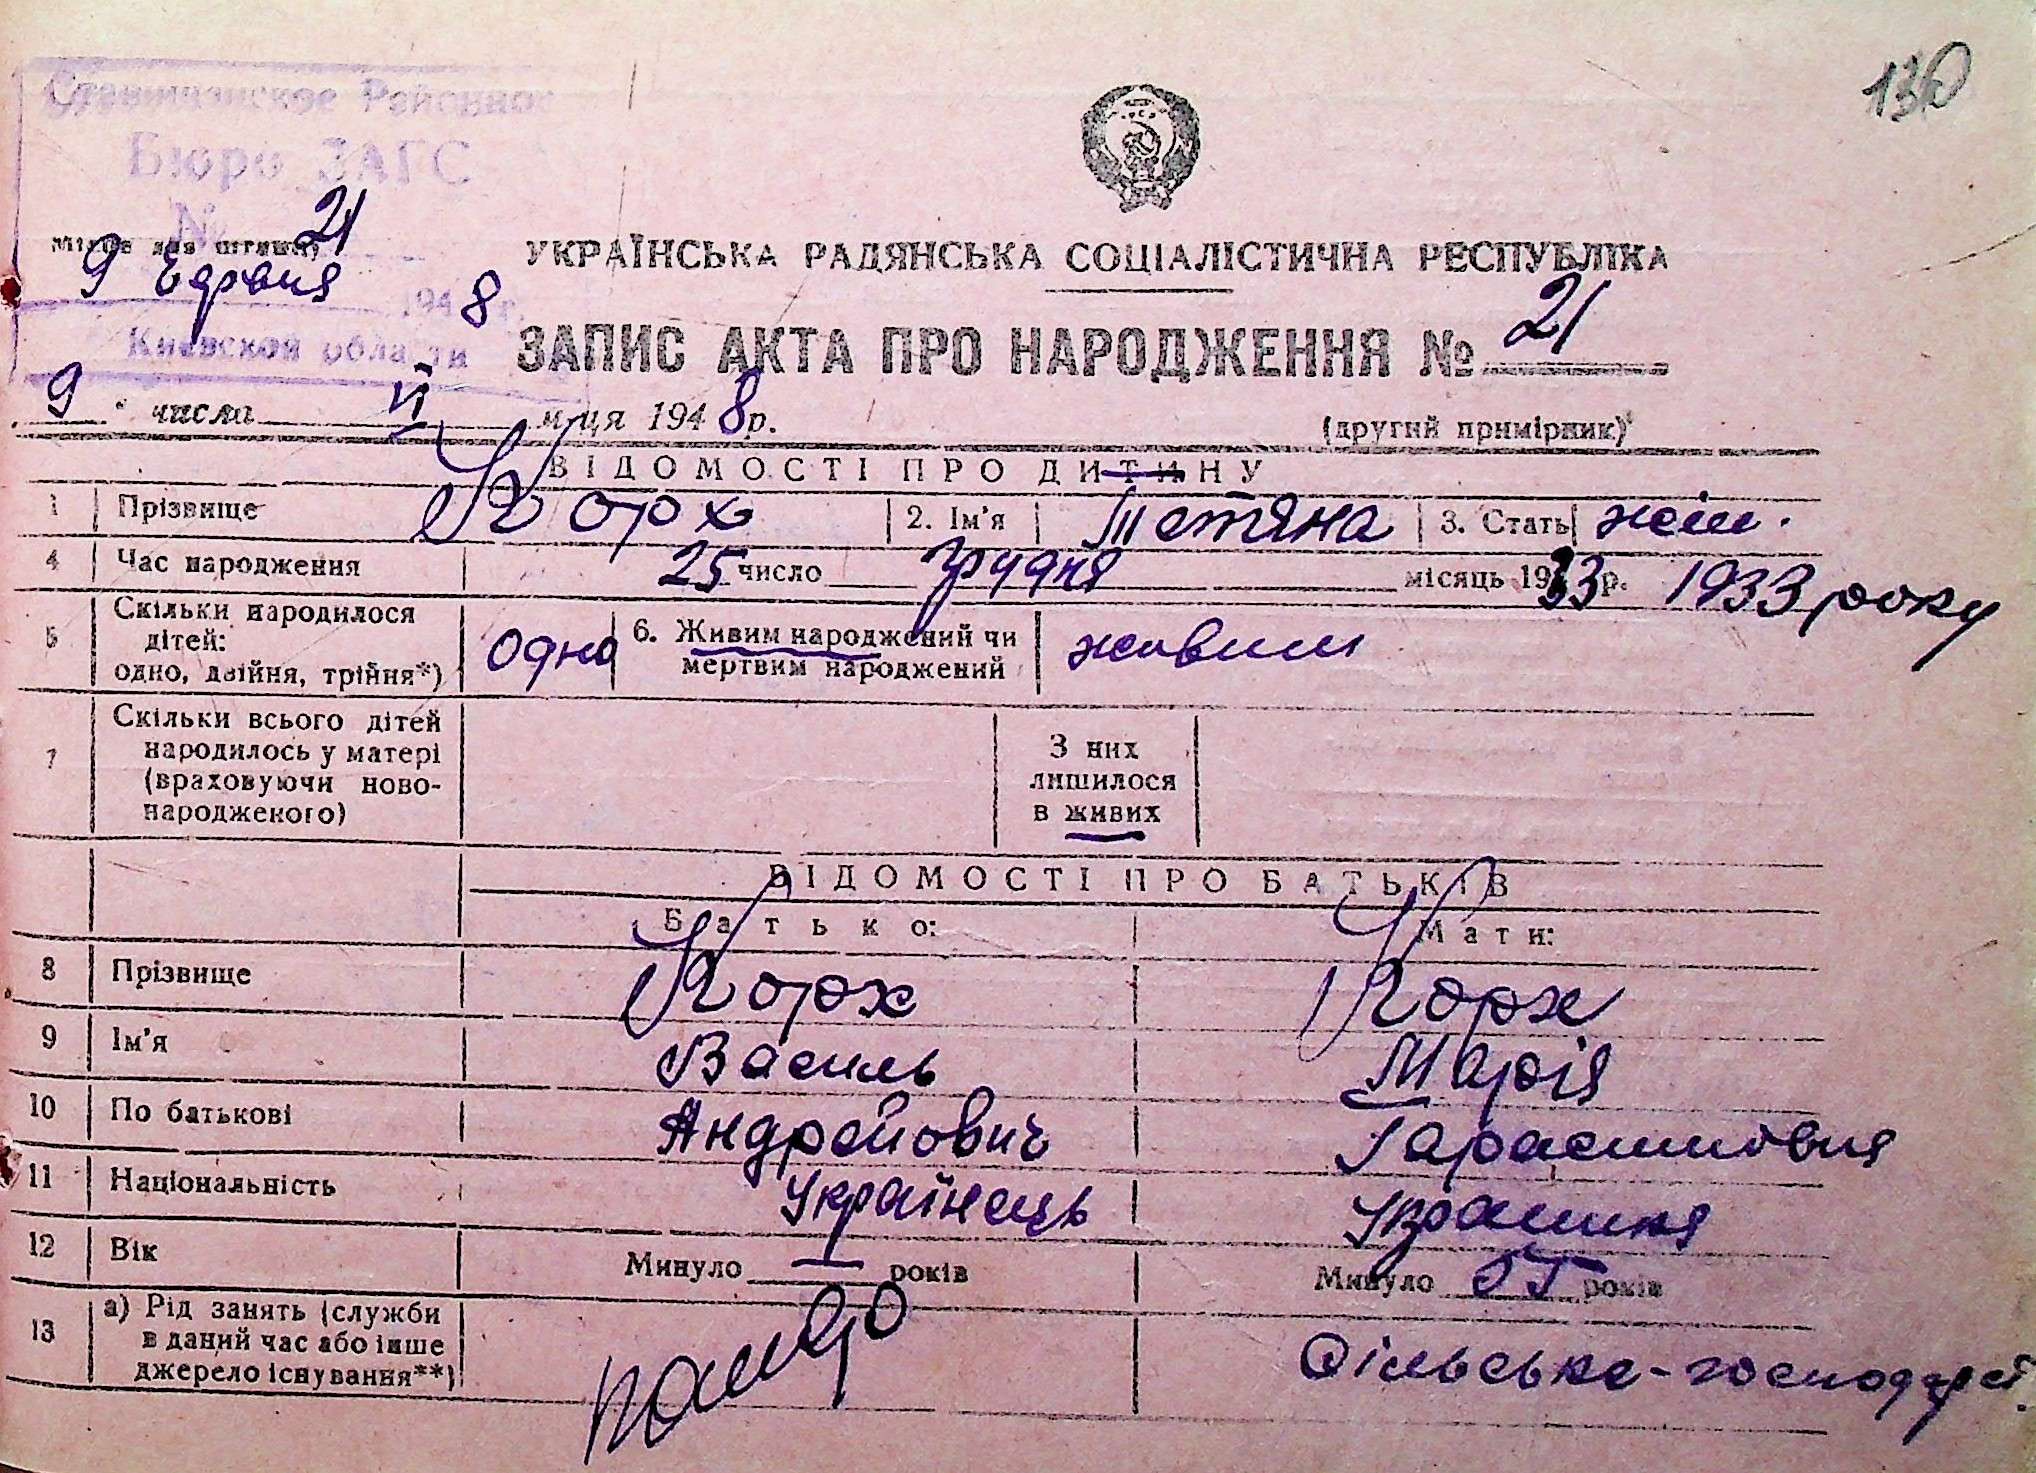 130
Районное
Бюро ЗАГС
№ 21
Місце для штампу
9 194 8 г.
Киевской области
УКРАЇНСЬКА РАДЯНСЬКА СОЦІАЛІСТИЧНА РЕСПУБЛІКА
ЗАПИС АКТА ПРО НАРОДЖЕННЯ № 21
9 числа VI м-ця 1948 р.
(другий примірник)
ВІДОМОСТІ ПРО ДИТИНУ
1 Прізвище Корж 2. Ім'я Тетяна 3. Стать жін.
4 Час народження 25 число Грудня місяць 1933 р. 1933 року
5 Скільки народилося дітей: одно, двійня, трійня*) Одно 6. Живим народжений чи мертвим народжений живим
7 Скільки всього дітей народилось у матері (враховуючи ново-народженого) З них лишилося в живих
ВІДОМОСТІ ПРО БАТЬКІВ
Батько: Мати:
8 Прізвище Корж Корж
9 Ім'я Василь Марія
10 По батькові Андрейович Гарасимовна
11 Національність Українець Українка
12 Вік Минуло — років Минуло років
13 а) Рід занять (служби в даний час або інше джерело існування**)
Сільське-господарст.